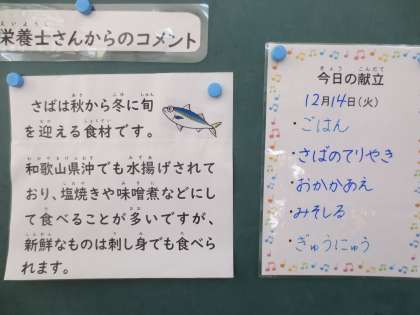 栄養士さんからのコメント
さばは秋から冬に旬
を迎える食材です。
和歌山県沖でも水揚げされて
おり、塩焼きや味噌煮などにし
て食べることが多いですが、
新鮮なものは刺し身でも食べら
れます。
今日の献立
12月14日(火)
・ごはん
・さばのてりやき
・おかかあえ
・みそしる
・ぎゅうにゅう